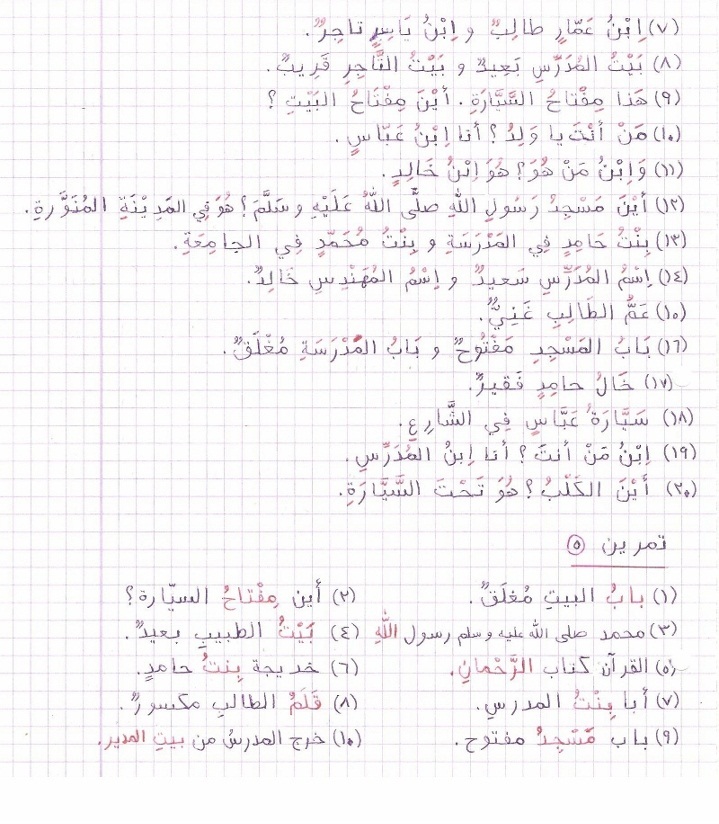 (٧) اِبْنُ عَمَّارٍ طالِبٌ و اِبْنُ يَاسِرٍ تاجِرٌ.
(٨) بَيْتُ المُدَرِّسِ بَعِيدٌ و بَيْتُ التَّاجِرِ قَرِيبٌ.
(٩) هَذا مِفْتاحُ السَّيَّارَةِ. أَيْنَ مِفْتَاحُ البَيْتِ؟
(١٠) مَنْ أَنْتَ يا وَلِدُ؟ أنا اِبْنُ عَبَّاسٍ.
(١١) وَاِبْنُ مَنْ هُوَ؟ هُوَ اِبْنُ خَالِدٍ.
(١٢) أَيْنَ مَسْجِدُ رَسُولِ اللهِ صلَّى اللهُ عَلَيْهِ و سَلَّمَ؟ هُوَ فِي المَدِيْنَةِ المُنَوَّرةِ.
(١٣) بِنْتُ حَامِدٍ فِي المَدْرَسَةِ و بِنْتُ مُحَمَّدٍ فِي الجامِعَةِ.
(١٤) اِسْمُ المُدَرِّسِ سَعيدٌ و اِسْمُ المُهَنْدِسِ خَالِدٌ.
(١٥) عَمُّ الطَالِبِ غَنِيٌّ.
(١٦) بَابُ المَسْجِدِ مَفْتُوحٌ و بَابُ المَدْرَسَةِ مُغْلَقٌ.
(١٧) خَالُ حامِدٍ فَقيرٌ.
(١٨) سَيَّارَةُ عَبَّاسٍ فِي الشَّارِعِ.
(١٩) اِبْنُ مَنْ أنتَ؟ أنا اِبنُ المُدَرِّسِ.
(٢٠) أَيْنَ الكَلْبُ؟ هُوَ تَحْتَ السَّيَّارَةِ.
تمرين ٥
(١) بابُ البيتِ مُغلَقٌ. (٢) أين مِفْتاحُ السيّارة؟
(٣) محمد صلى الله عليه و سلم رسول اللهِ (٤) بَيْتُ الطبيبِ بعيدٌ.
(٥) القرآن كتاب الرَّحْمانِ. (٦) خديجة بِنتُ حامدٍ.
(٧) أبا بِنْتُ المدرسِ. (٨) قَلَمُ الطالبِ مكسورٌ.
(٩) باب مَسْجِدُ مفتوح. (١٠) خرج المدرسُ من بيتِ المدير.